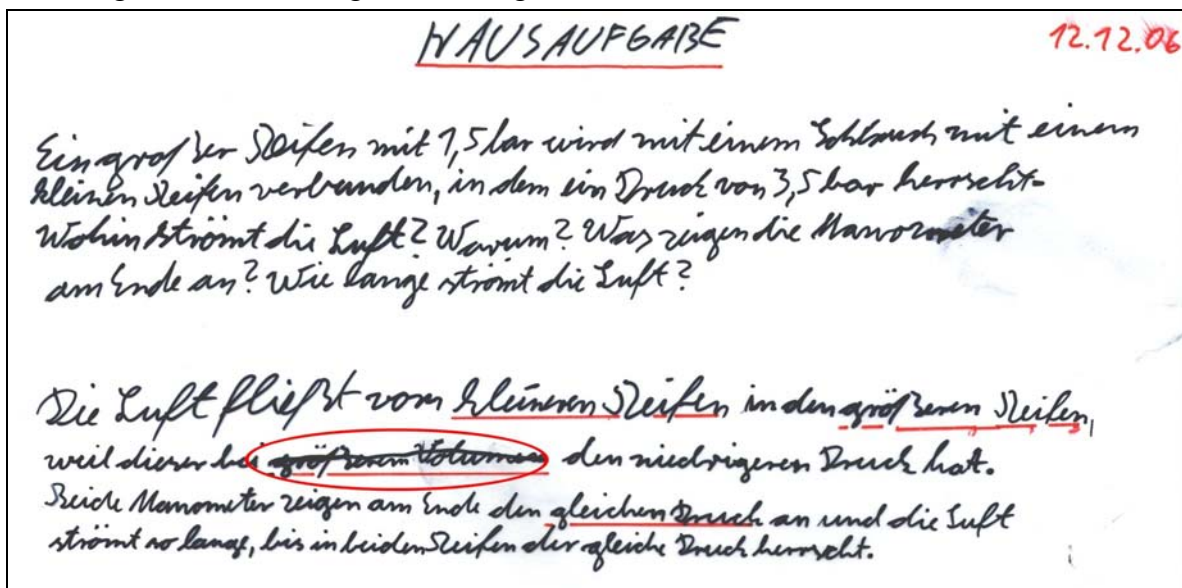 HAUSAUFGABE
12.12.06
Ein großer Reifen mit 1,5 bar wird mit einem Schlauch mit einem
kleinen Reifen verbunden, in dem ein Druck von 3,5 bar herrscht.
Wohin strömt die Luft? Warum? Was zeigen die Manometer
am Ende an? Wie lange strömt die Luft?
Die Luft fließt vom kleineren Reifen in den größeren Reifen,
weil dieser bei größerem Volumen den niedrigeren Druck hat.
Beide Manometer zeigen am Ende den gleichen Druck an und die Luft
strömt so lange, bis in beiden Reifen der gleiche Druck herrscht.